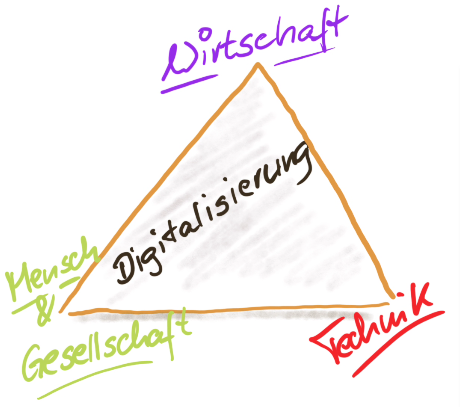 Wirtschaft
Digitalisierung
Mensch
&
Gesellschaft
Technik